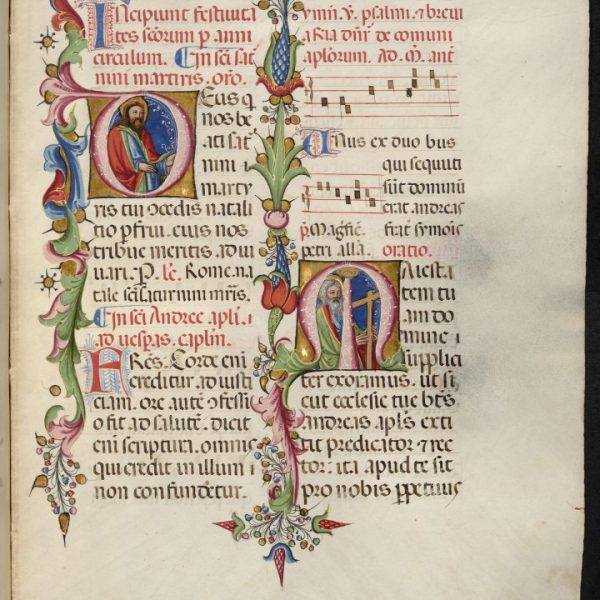 Incipiunt festiuita
tes scorum p anni
circulum. In sci sat
nini martiris. oro.
Deus q
nos be
ati sat
nini i
marty
ris tui ↄcedis natali
tio pfrui. eius nos
tribue meritis adiu
uari. P. le. Rome. na
tale sci saturnini mris.
In sci Andree apli. i
ad uespas. caplm.
FRes. Corde eni
creditur ad iusti
ciam. ore aute ↄfessi
o fit ad salute. dicit
eni scriptura. omnis
qui credit in illum i
non confundetur.
ymni. V. psalmi. & breui
aria dnr de comuni
aplorum. Ad. M. ant
Unus ex duo bus
qui sequuti
sut dominu
erat andreas
p Magfic. frat symois
petri alla. oratio.
Maiesta
tem tu
am do
mine i
supplici
ter exoramus. ut si
cut ecclesie tue bts
andreas apls exti
tit predicator & rec
tor. ita apud te sit
pro nobis ppetuus